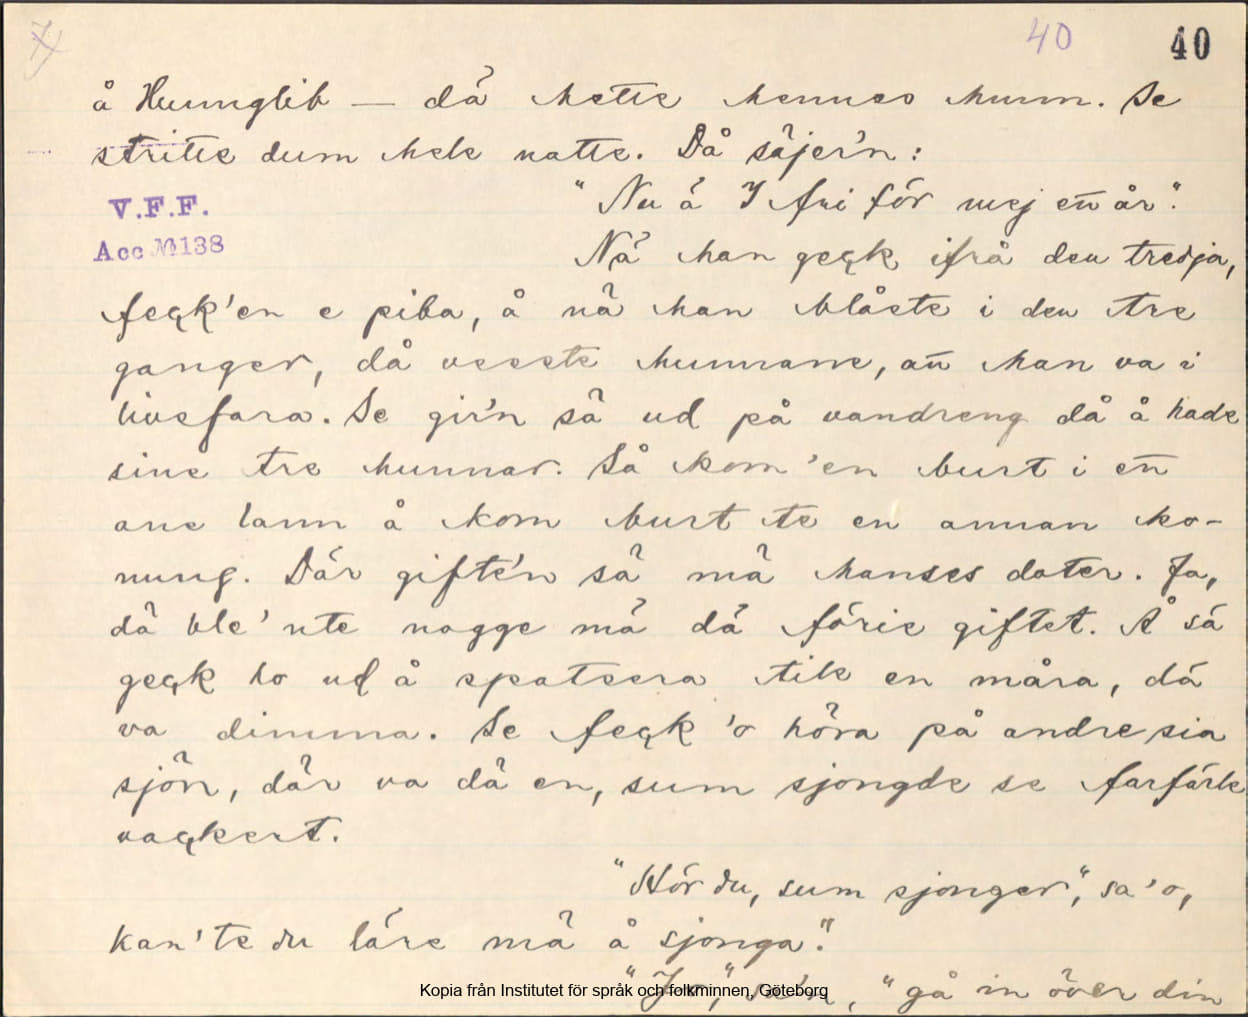 40 40
å Hunnglib — dä hette hennes hunn. Se
stritte dum hele natte. Då säjer'n:
V.F.F.
"Nu ä I fri för mej ett år".
Acc № 138
Nä han geçk ifrå den tredja,
feçk'en e piba, å nä han blåste i den tre
ganger, då vesste hunnane, att han va i
livsfara. Se gir'n sä ud på vandreng då å hade
sine tre hunnar. Så kom 'en burt i ett
ane lann å kom burt te en annan ko-
nung. Där gifte'n sä mä hanses dater. Ja,
dä ble' nte nogge mä dä förie giftet. Å sä
geçk ho ud å spatsera tile en måra, dä
va dimma. Se feçk 'o höra på andre sia
sjön, där va dä en, sum sjongde se farfärle
vaçkert.
"Hör du, sum sjonger", sa 'o,
kan'te du läre mä å sjonga."
"Jo", sa'n, "gå in över din
Kopia från Institutet för språk och folkminnen, Göteborg